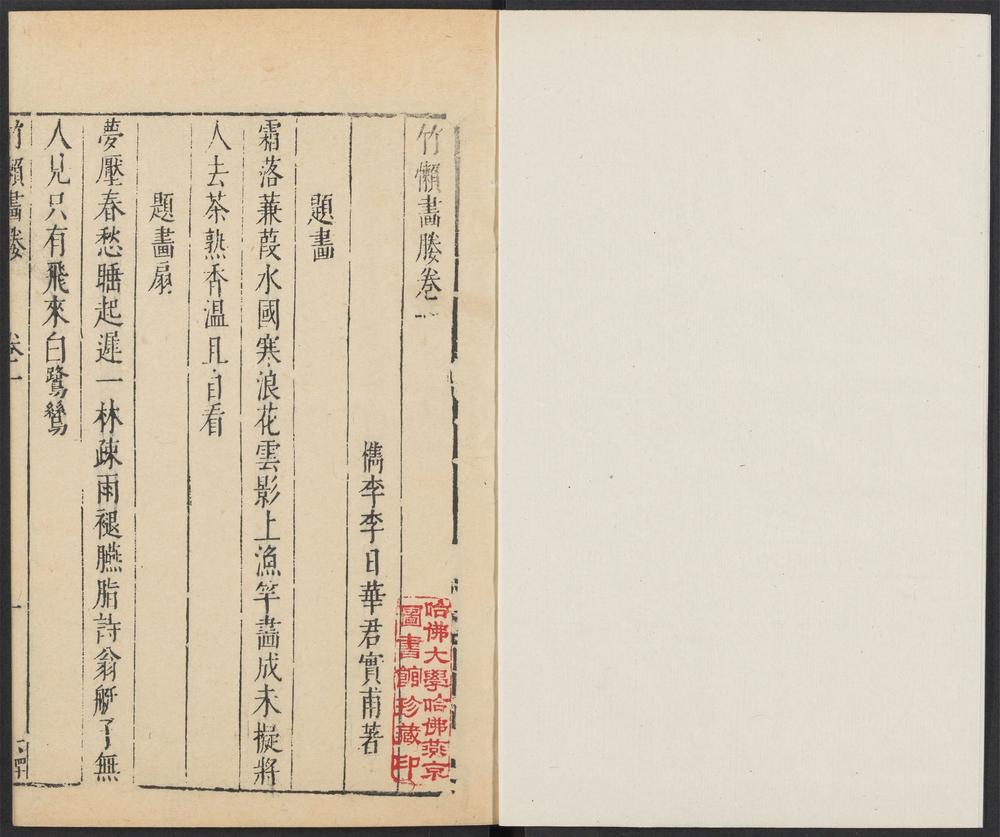 竹嬾畫媵卷一
檇李李日華君實甫著
題畫
霜落蒹葭水國寒浪花雲影上漁竿畵成未擬將
人去茶熟香溫且自看
題畵扇
夢壓春愁睡起遲一林疎雨褪臙脂詩翁艇子無
人見只有飛來白鷺鷥
竹嬾畫媵
卷一
一
哈佛大學哈佛燕京
圖書館珍藏印